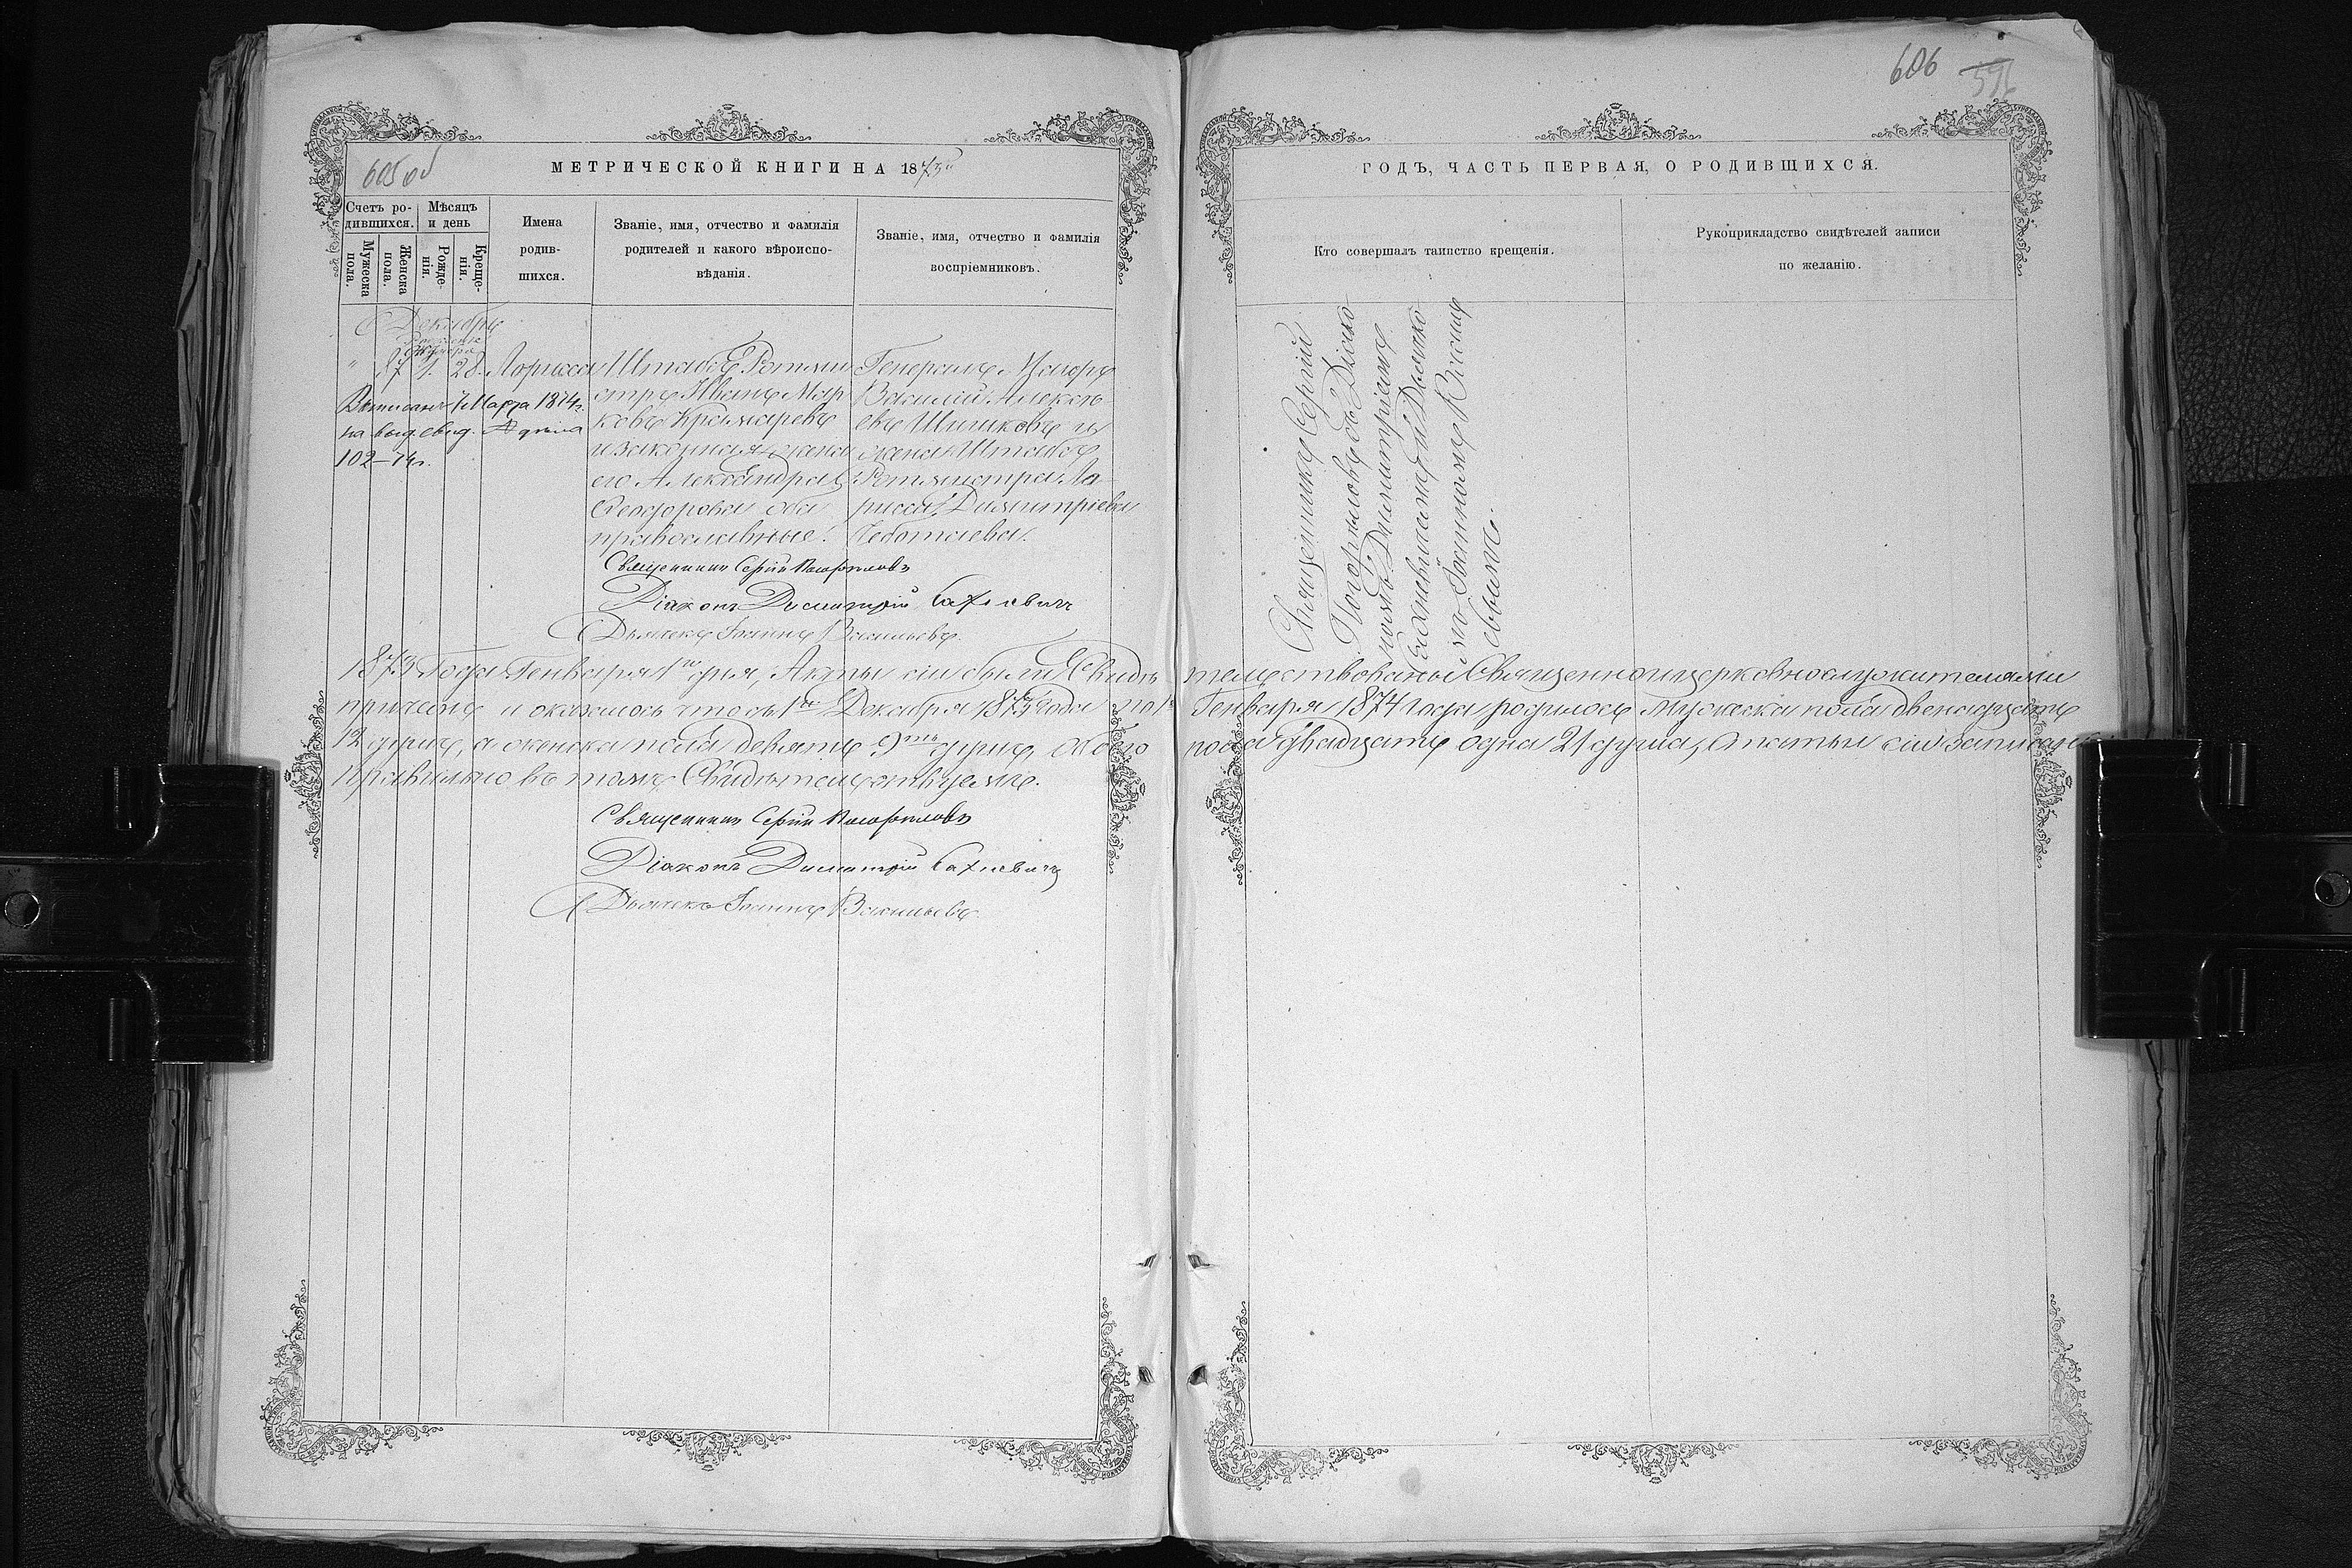 606
596
605 об
МЕТРИЧЕСКОЙ КНИГИ НА 1873й
ГОДЪ, ЧАСТЬ ПЕРВАЯ, О РОДИВШИХСЯ.
Счетъ ро-
дившихся.
Мужеска
пола.
Женска
пола.
Мѣсяцъ
и день
Рожде-
нія.
Креще-
нія.
Имена
родив-
шихся.
Званіе, имя, отчество и фамилія
родителей и какого вѣроиспо-
вѣданія.
Званіе, имя, отчество и фамилія
воспріемниковъ.
Кто совершалъ таинство крещенія.
Рукоприкладство свидѣтелей записи
по желанію.
Декабрь
" 1. 28. Лорисса
Марта 1874г.
на выд. свид.
102–74г.
Штабсъ Ротми
стръ Иванъ Мар
ковъ Крамаревъ
и законная жена
его Александра
Феодорова оба
православные.
Генералъ Маіоръ
Василій Алексѣ
евъ Шишковъ и
жена Штабсъ
Ротмистра Ла-
рисса Димитріева
Чеботаева.
Священникъ Сергій
съ Діако
номъ Димитріемъ
и Дьячко
мъ Іоанномъ Василь
евымъ.
Священникъ Сергій
Діаконъ Димитрій
Дьячекъ Іоаннъ Васильевъ.
1873 Года Генваря 1го дня, Акты сіи были Свидѣ
тельствованы Священноцерковнослужителями
причемъ и оказалось что съ 1го Декабря 1873 года по 1е
Генваря 1874 года родилось Мужеска пола двенадцать
12 душъ, а женска пола девять 9ть душъ, обоего
пола двадцать одна 21 душа, статьи сіи записаны
правильно въ томъ Свидѣтельствуемъ.
Священникъ Сергій
Діаконъ Димитрій
Дьячекъ Іоаннъ Васильевъ